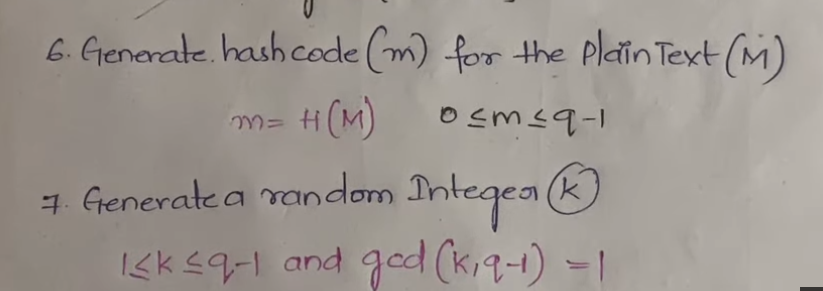 6. Generate. hash code (m) for the Plain Text (M)
m = H(M) 0 ≤ m ≤ q-1
7. Generate a random Integer (K)
1 ≤ K ≤ q-1 and gcd (K, q-1) = 1